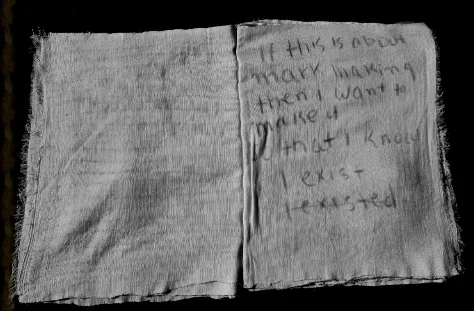 If this is about
mark making
then I want to
make it
that I know
I exist
I existed.